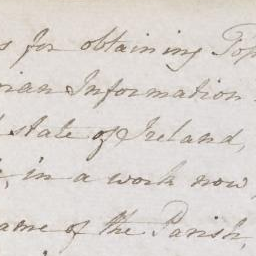 s for obtaining Top
rian Information
state of Ireland,
, in a work now,
ame of the Parish,